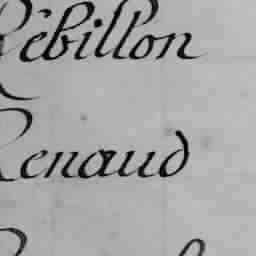 Rébillon
Renaud